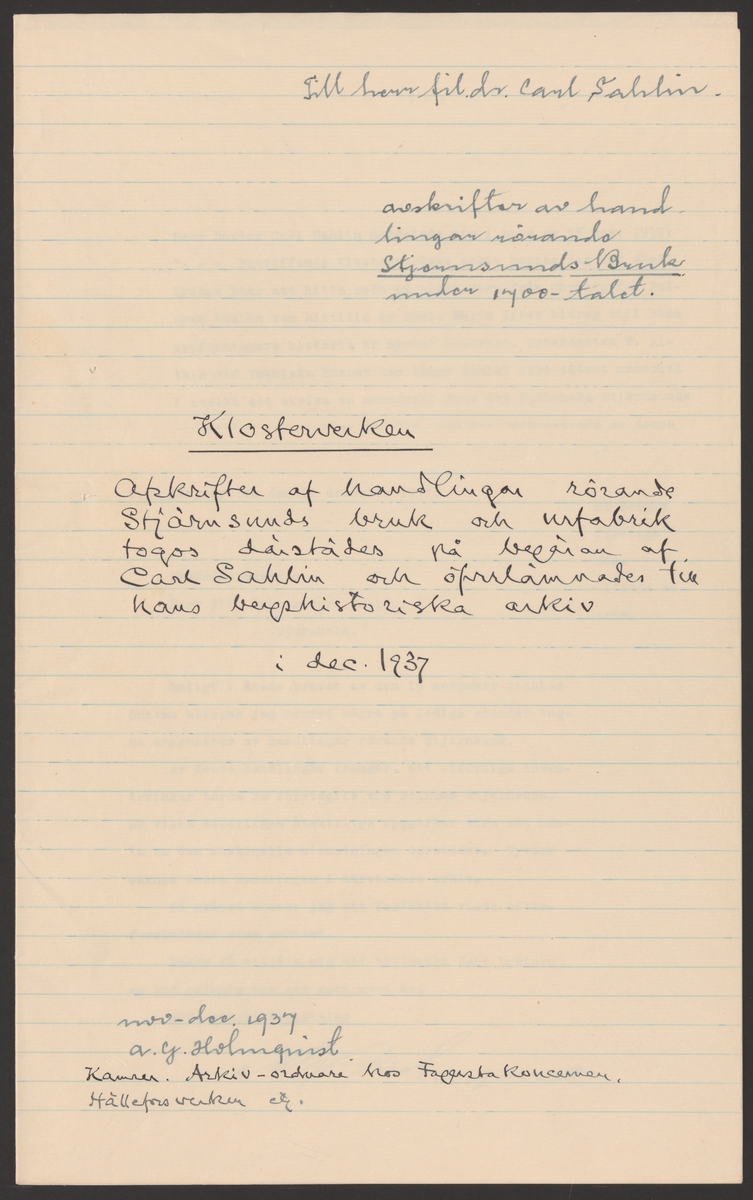 Till herr fil.dr. Carl Sahlin.
avskrifter av hand-
lingar rörande
Stjernsunds Bruk
under 1700-talet.
Klosterverken
Afskrifter af handlingar rörande
Stjärnsunds bruk och urfabrik
togos därstädes på begäran af
Carl Sahlin och öfverlämnades till
hans bergshistoriska arkiv
i dec. 1937
nov-dec. 1937
A.G. Holmqvist.
Kamrer. Arkiv-ordnare hos Fagerstakoncernen,
Hälleforsverken